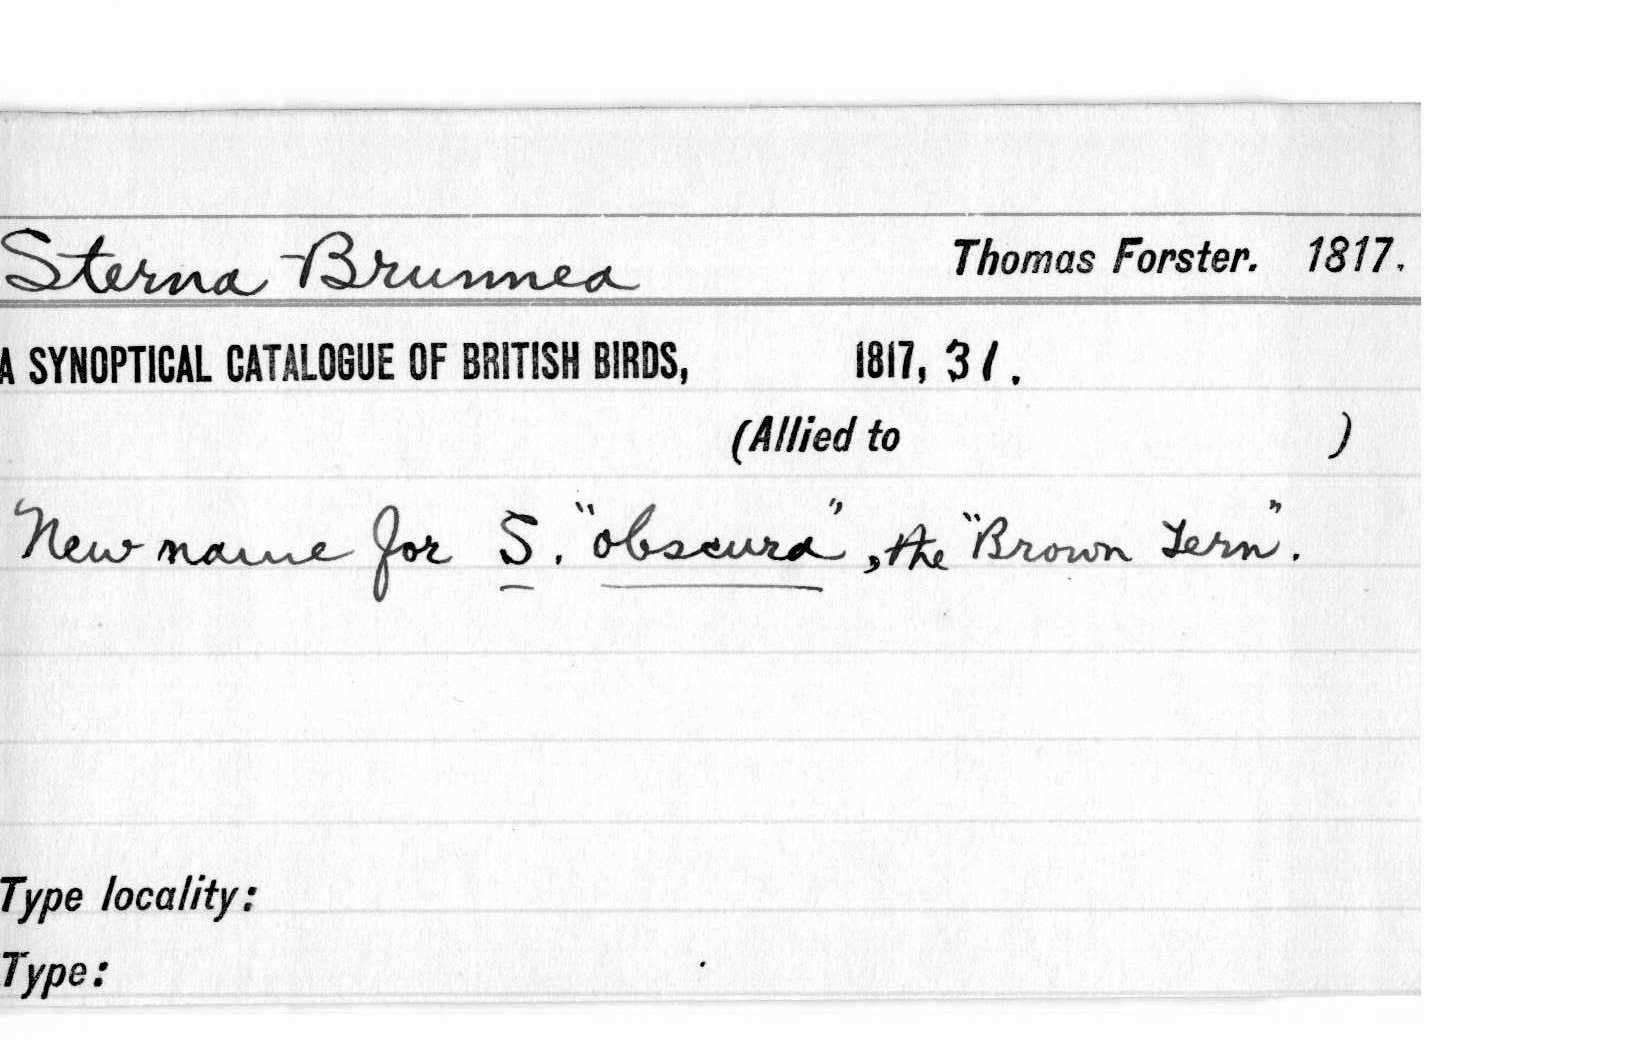 Sterna Brunnea Thomas Forster. 1817.
A SYNOPTICAL CATALOGUE OF BRITISH BIRDS, 1817, 31.
(Allied to )
New name for S. "obscura", the "Brown Tern".
Type locality:
Type: